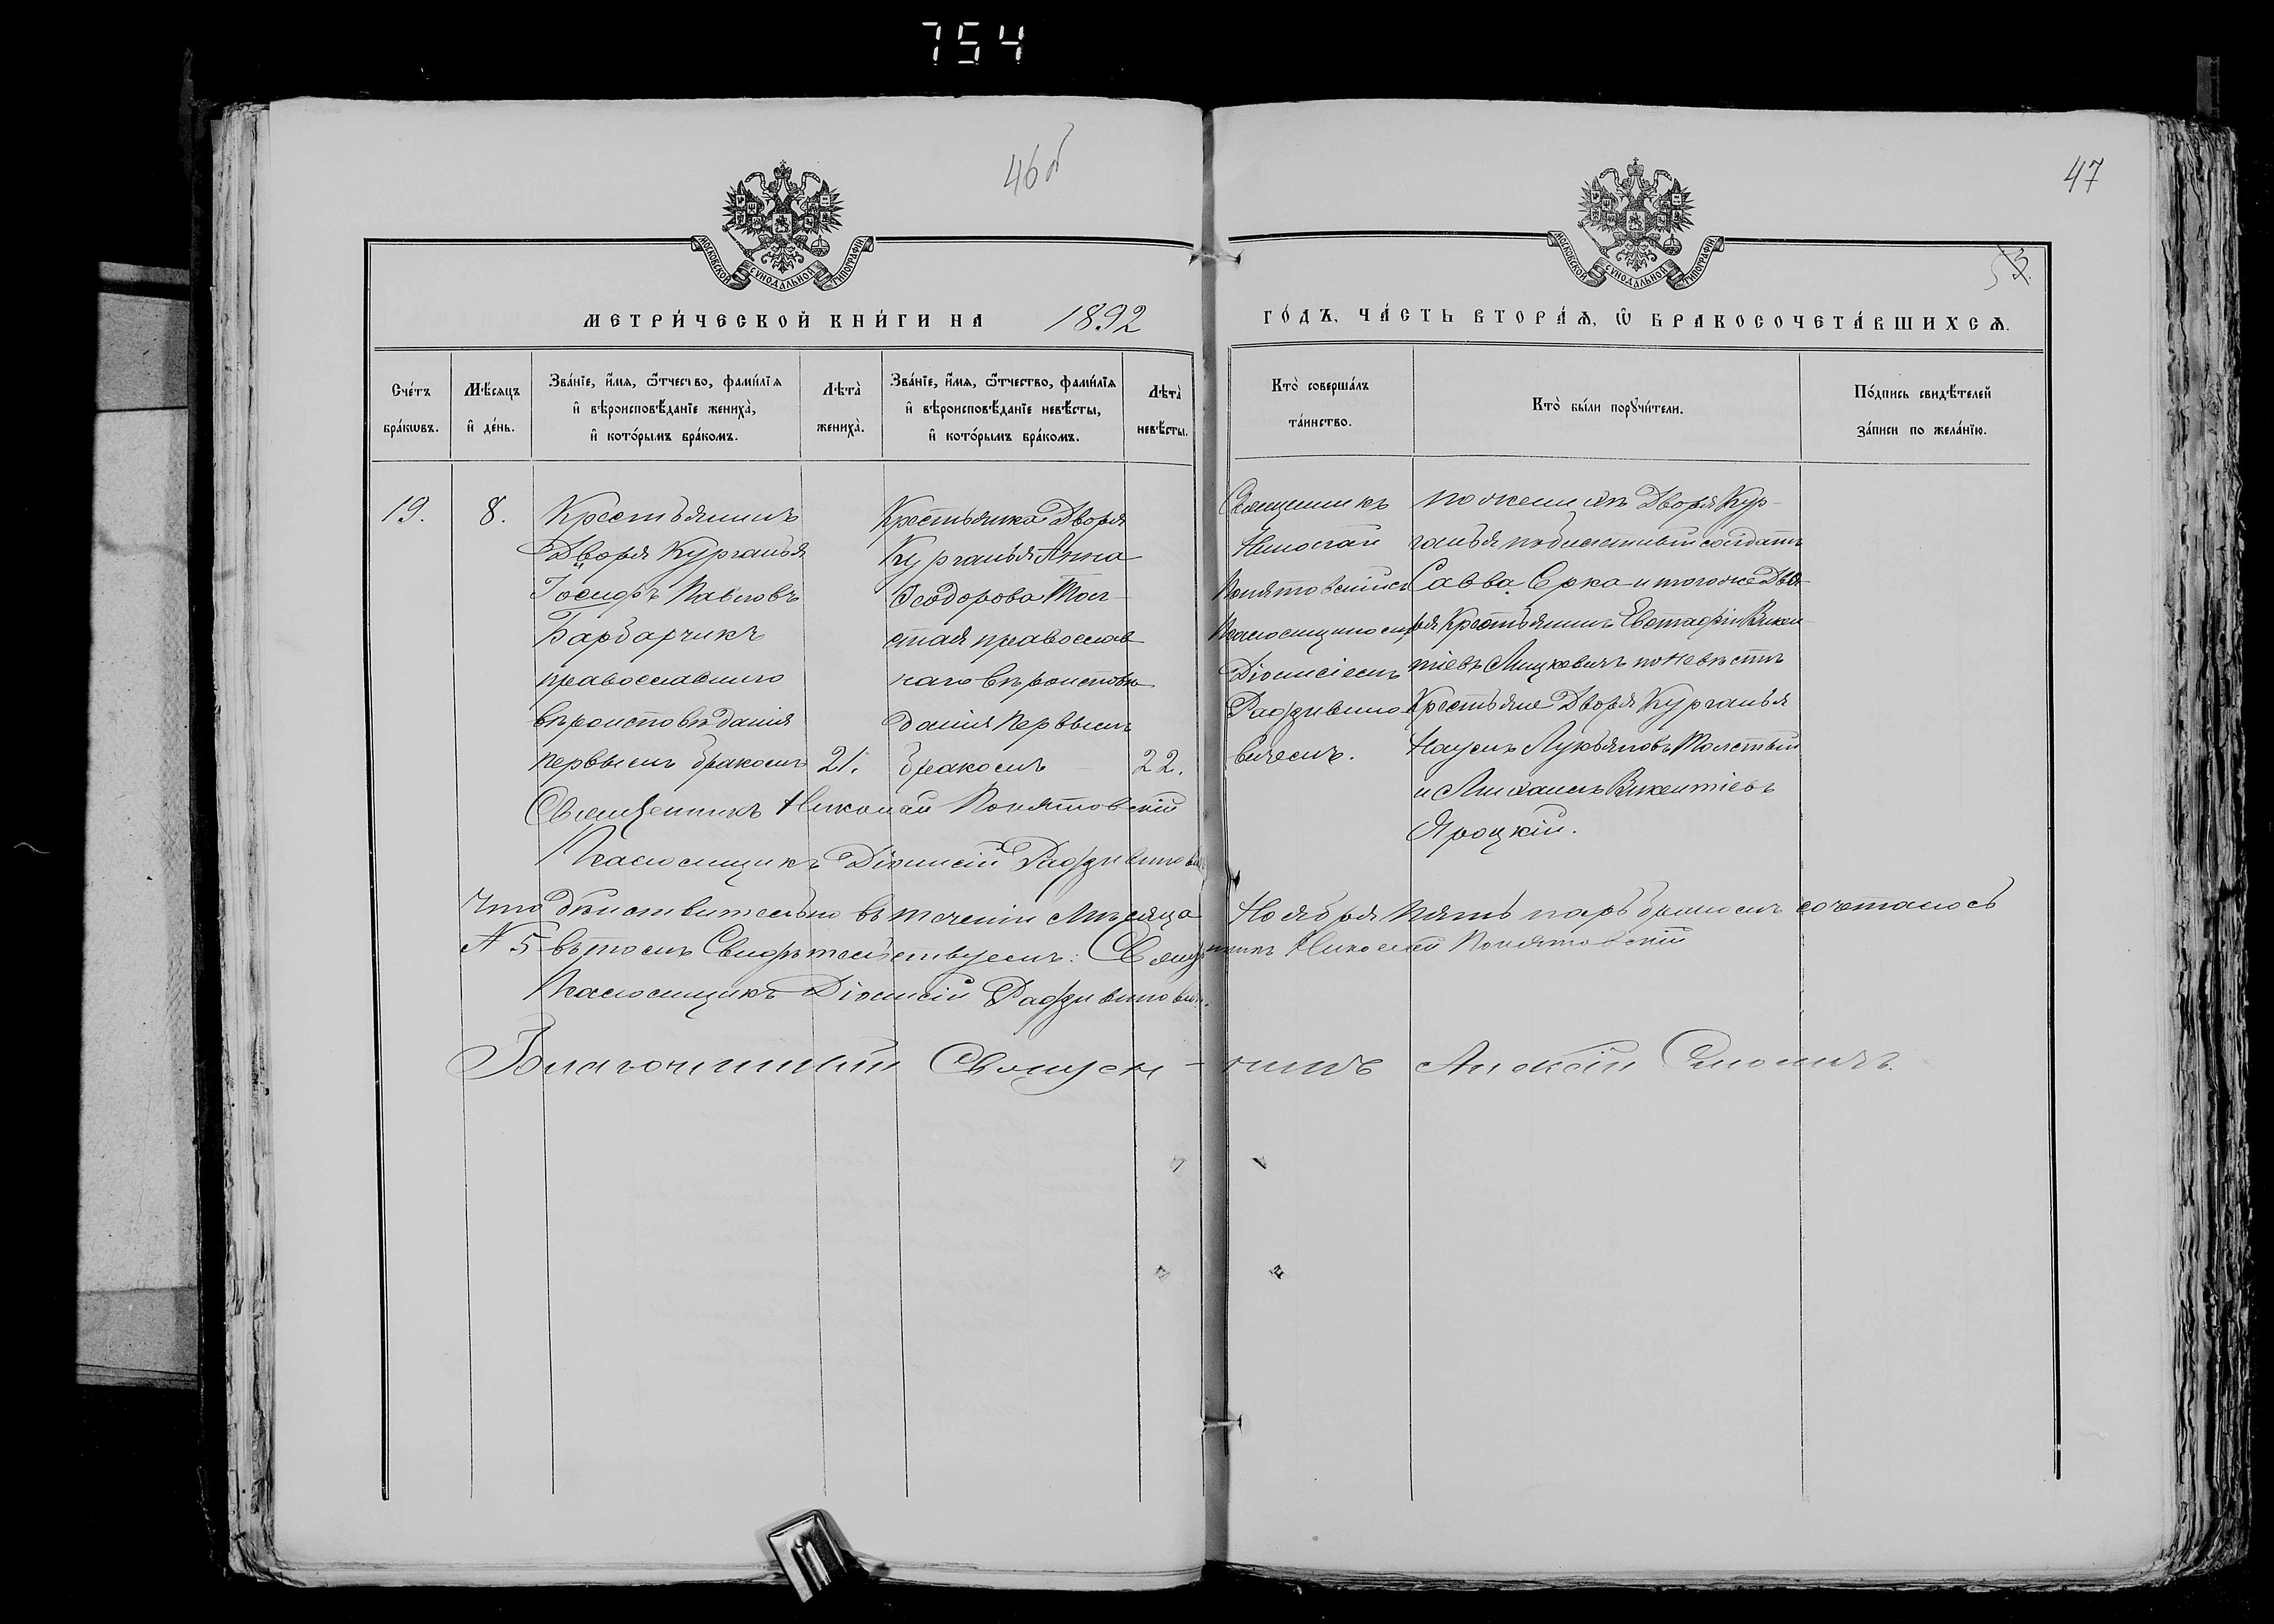 754
46об
47
53.
МОСКОВСКОЙ СѴНОДАЛЬНОЙ ТИПОГРАФІИ
МОСКОВСКОЙ СѴНОДАЛЬНОЙ ТИПОГРАФІИ
МЕТРИ́ЧЕСКОЙ КНИ́ГИ НА 1892 ГО́ДЪ, ЧА́СТЬ ВТОРА́Ѧ, Ѽ БРАКОСОЧЕТА́ВШИХСѦ.
Сче́тъ
бра́кѡвъ.
Мѣ́сѧцъ
и҆ де́нь.
Зва́нїе, и҆́мѧ, ѻ҆́тчество, фами́лїѧ
и҆ вѣроисповѣ́данїе жениха̀,
и҆ кото́рымъ бра́комъ.
Лѣта̀
жениха̀.
Зва́нїе, и҆́мѧ, ѻ҆́тчество, фами́лїѧ
и҆ вѣроисповѣ́данїе невѣ́сты,
и҆ кото́рымъ бра́комъ.
Лѣта̀
невѣ́сты.
Кто̀ соверша́лъ
та́инство.
Кто̀ бы́ли порꙋчи́тели.
По́дпись свидѣ́телей
за́писи по жела́нїю.
19.
8.
Крестьянинъ
Дворя Курганья
Іосифъ Павловъ
Барбарчикъ
православнаго
вѣроисповѣданія
первымъ бракомъ
21.
Крестьянка Дворя
Курганья Анна
Ѳеодорова Тол-
стая православ
наго вѣроисповѣ
данія первымъ
бракомъ
22.
Священникъ
Николай
Понятовскій съ
Псаломщикомъ
Діонисіемъ
Радзивино
вичемъ.
по женихѣ Дворя Кур-
ганья солдатъ
Савва Ерка и того же Дво-
ря Крестьянинъ Евстафій Викен
тіевъ Мицкевичъ по невѣстѣ
Крестьяне Дворя Курганья
Наумъ Лукьяновъ Толстый
и Михаилъ Викентіевъ
Яроцкій.
Священникъ Николай Понятовскій
Псаломщикъ Діонисій
Что дѣйствительно въ теченіи Мѣсяца Ноября пять паръ бракомъ сочеталось
№ 5 въ томъ Свидѣтельствуемъ: Священникъ Николай Понятовскій
Псаломщикъ Діонисій
Благочинный Священ-никъ Алексій